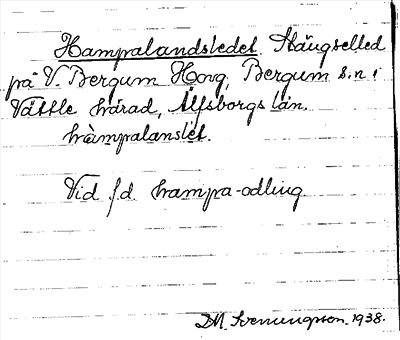 Hampalandsledet. Stängselled
på V. Bergum Horg, Bergum s:n i
Vättle härad, Älfsborgs län.
hàmpalanslét.
Vid f.d. hampa-odling
D.M. Svenungsson. 1938.